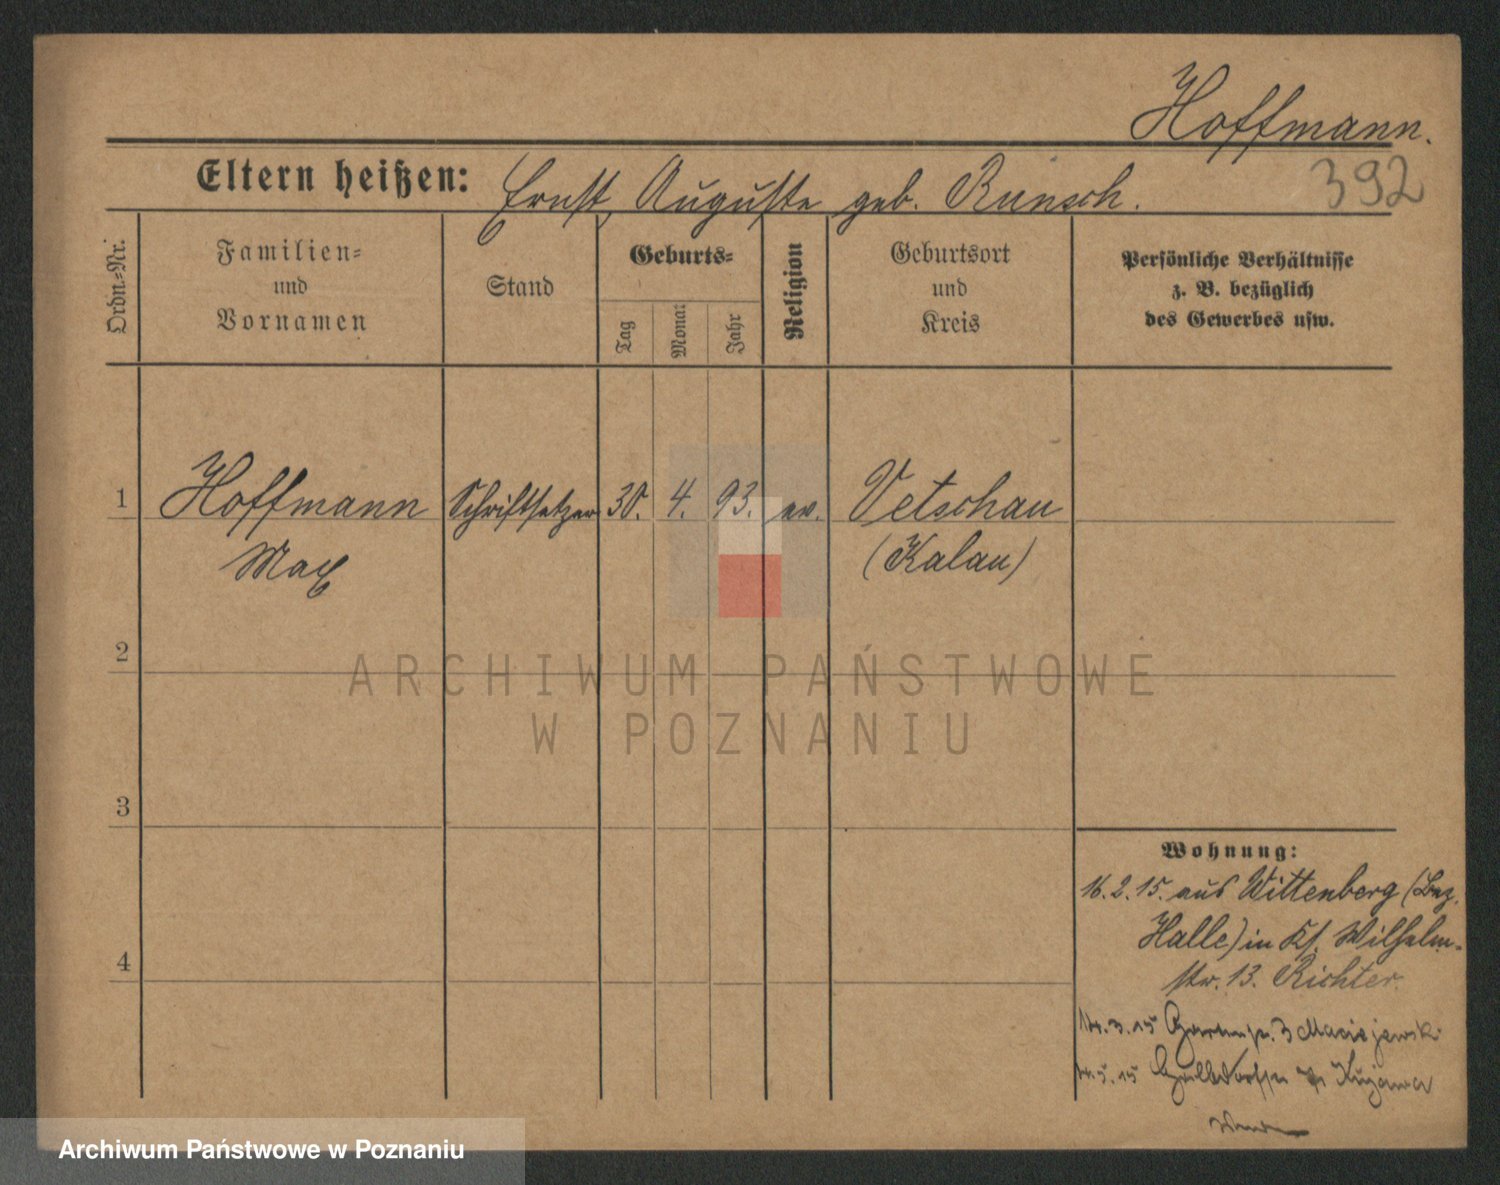 Hoffmann.
392
Eltern heißen: Ernst, Auguste geb. Runsch.
Ordn.-Nr.
Familien-
und
Vornamen
Stand
Geburts-
Tag
Monat
Jahr
Religion
Geburtsort
und
Kreis
Persönliche Verhältnisse
z. B. bezüglich
des Gewerbes usw.
1 Hoffmann Schriftsetzer 30. 4. 93. ev. Vetschau
Max (Kalau)
2
3
4
Wohnung:
16.2.15. aus Wittenberg (Bez.
Halle) in Kf. Wilhelm-
str. 13. Richter.
3 Maciejewski
Kujawa
ARCHIWUM PAŃSTWOWE
W POZNANIU
Archiwum Państwowe w Poznaniu